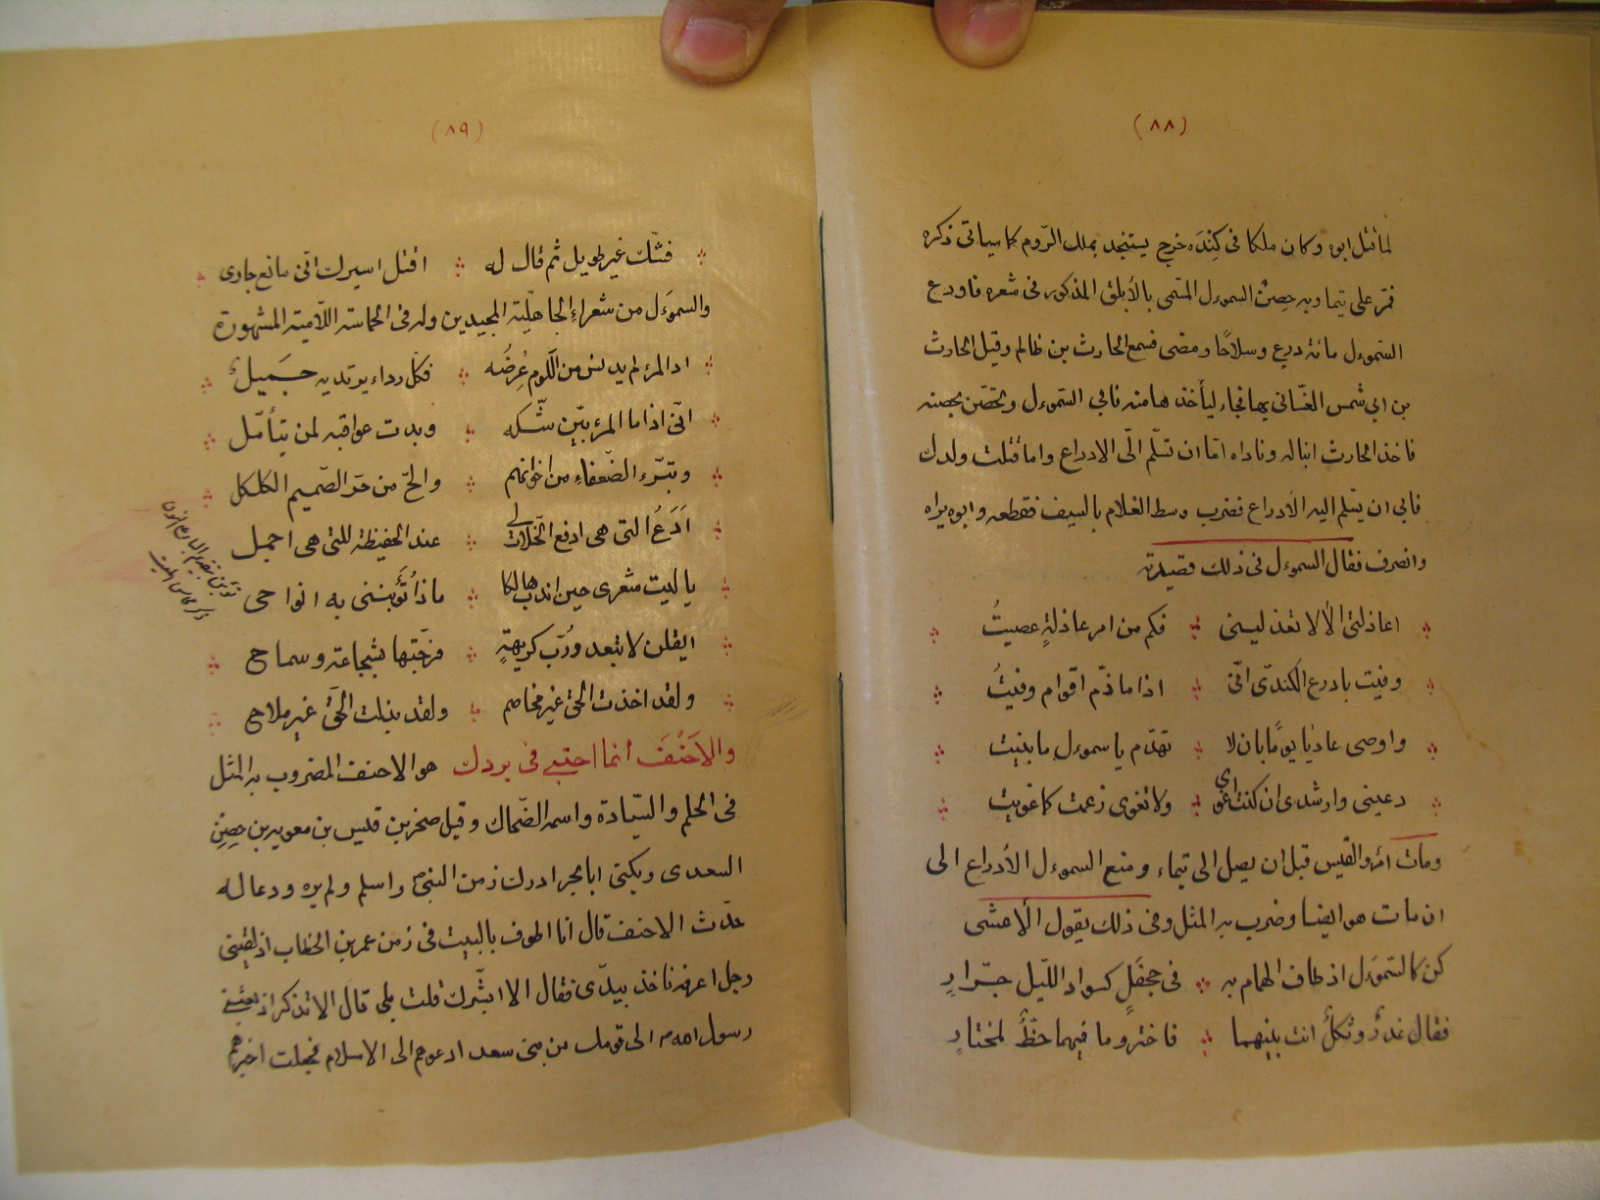 (٨٨)
لما قتل ابوه وكان ملكا فى كِندَه خرج يستنجد بملك الرّوم كما سياتى ذكره
فمرّ على تيما وبه حِصنُ السموءل المسمى بالأبلق المذكور فى شعره فاودع
السّموءل مائة درع وسلاحًا ومضى فسمع الحارث بن ظالم وقيل الحارث
بن ابي شمس الغسّانى بها فجاء ليأخذها منه فابى السموءل وتحصّن بحصنه
فاخذ الحارث ابنا له وناداه امّا ان تسلّم الىّ الادراع واما قتلت ولدك
فابى ان يسّلم اليه الأدراع فضرب وسط الغلام بالسيف فقطعه وابوه يراه
وانصرف فقال السموءل فى ذلك قصيدته
اعاذلتى الا لا تعذلينى فكم من امر عاذلةٍ عصيتُ
وفيت بادرع الكندّى انّى اذا ما ذمّ اقوام وفيتُ
واوصى عاديا يومًا بان لا تهدّم يا سموءل ما بنيت
دعينى وارشدى ان كنت اغوي ولا تغوى زعمت كما غويت
ومات امرؤ القيس قبل ان يصل الى تيماء ومنع السموءل الأدراع الى
ان مات هو ايضا وضرب به المثل وفى ذلك يقول الأعشى
كن كالسّموَءل اذ طاف الهمام به فى جحفَلٍ كسواد اللّيل جرّارٍ
فقال غدرٌ وثكلٌ انت بينهما فاختر وما فيهما حظٌّ لمختارٍ
(٨٩)
فشّك غير طويل ثم قال له اقتل اسيرك انّى مانع جارى
والسموَءل من شعراءِ الجاهليّة المجيدين وله فى الحماسة اللّامية المشهورة
اذا المرء لم يدنس من اللّوم عِرضُه فكلّ رداء يرتديه جَميلُ
انّى اذا ما المرء بيّن شّكه وبدت عواقبه لمن يتأمّل
وتبّرء الضّعفاء من اخوانهم والحّ من حرّ الصّميم الكلكل
اَدَعُ التى هى ارفع الخّلات لي عند الحفيظة للتى هى اجمل
يا ليت شعرى حين اندب هالكا ماذا تُؤَبننى به انواحى
ايقلن لا تبعد ورُبّ كريهةٍ فرّجتها بشجاعة وسماح
ولقد اخذت الحق غير مخاصم ولقد بذلت الحقَّ غير ملاح
والاَحْنَفَ اُنما احتبى فى بردك هو الاحنف المضروب به المثل
فى الحلم والسّيادة واسمه الضّحاك وقيل صخر بن قيس بن معويه بن حِصِن
السعدى ويكنى ابا بحر ادرك زمن النبى واسلم ولم يره ودعا له
حدّث الاحنف قال انا اطوف بالبيت فى زمن عمر بن الخطاب اذ لقينى
رجل اعرفه فاخذ بيدّى فقال الا ابشّرك قلت بلى قال الا تذكر اذ بعثنى
رسول الله الى قومك من بنى سعد ادعوهم الى الاسلام فجعلت اخبرهم